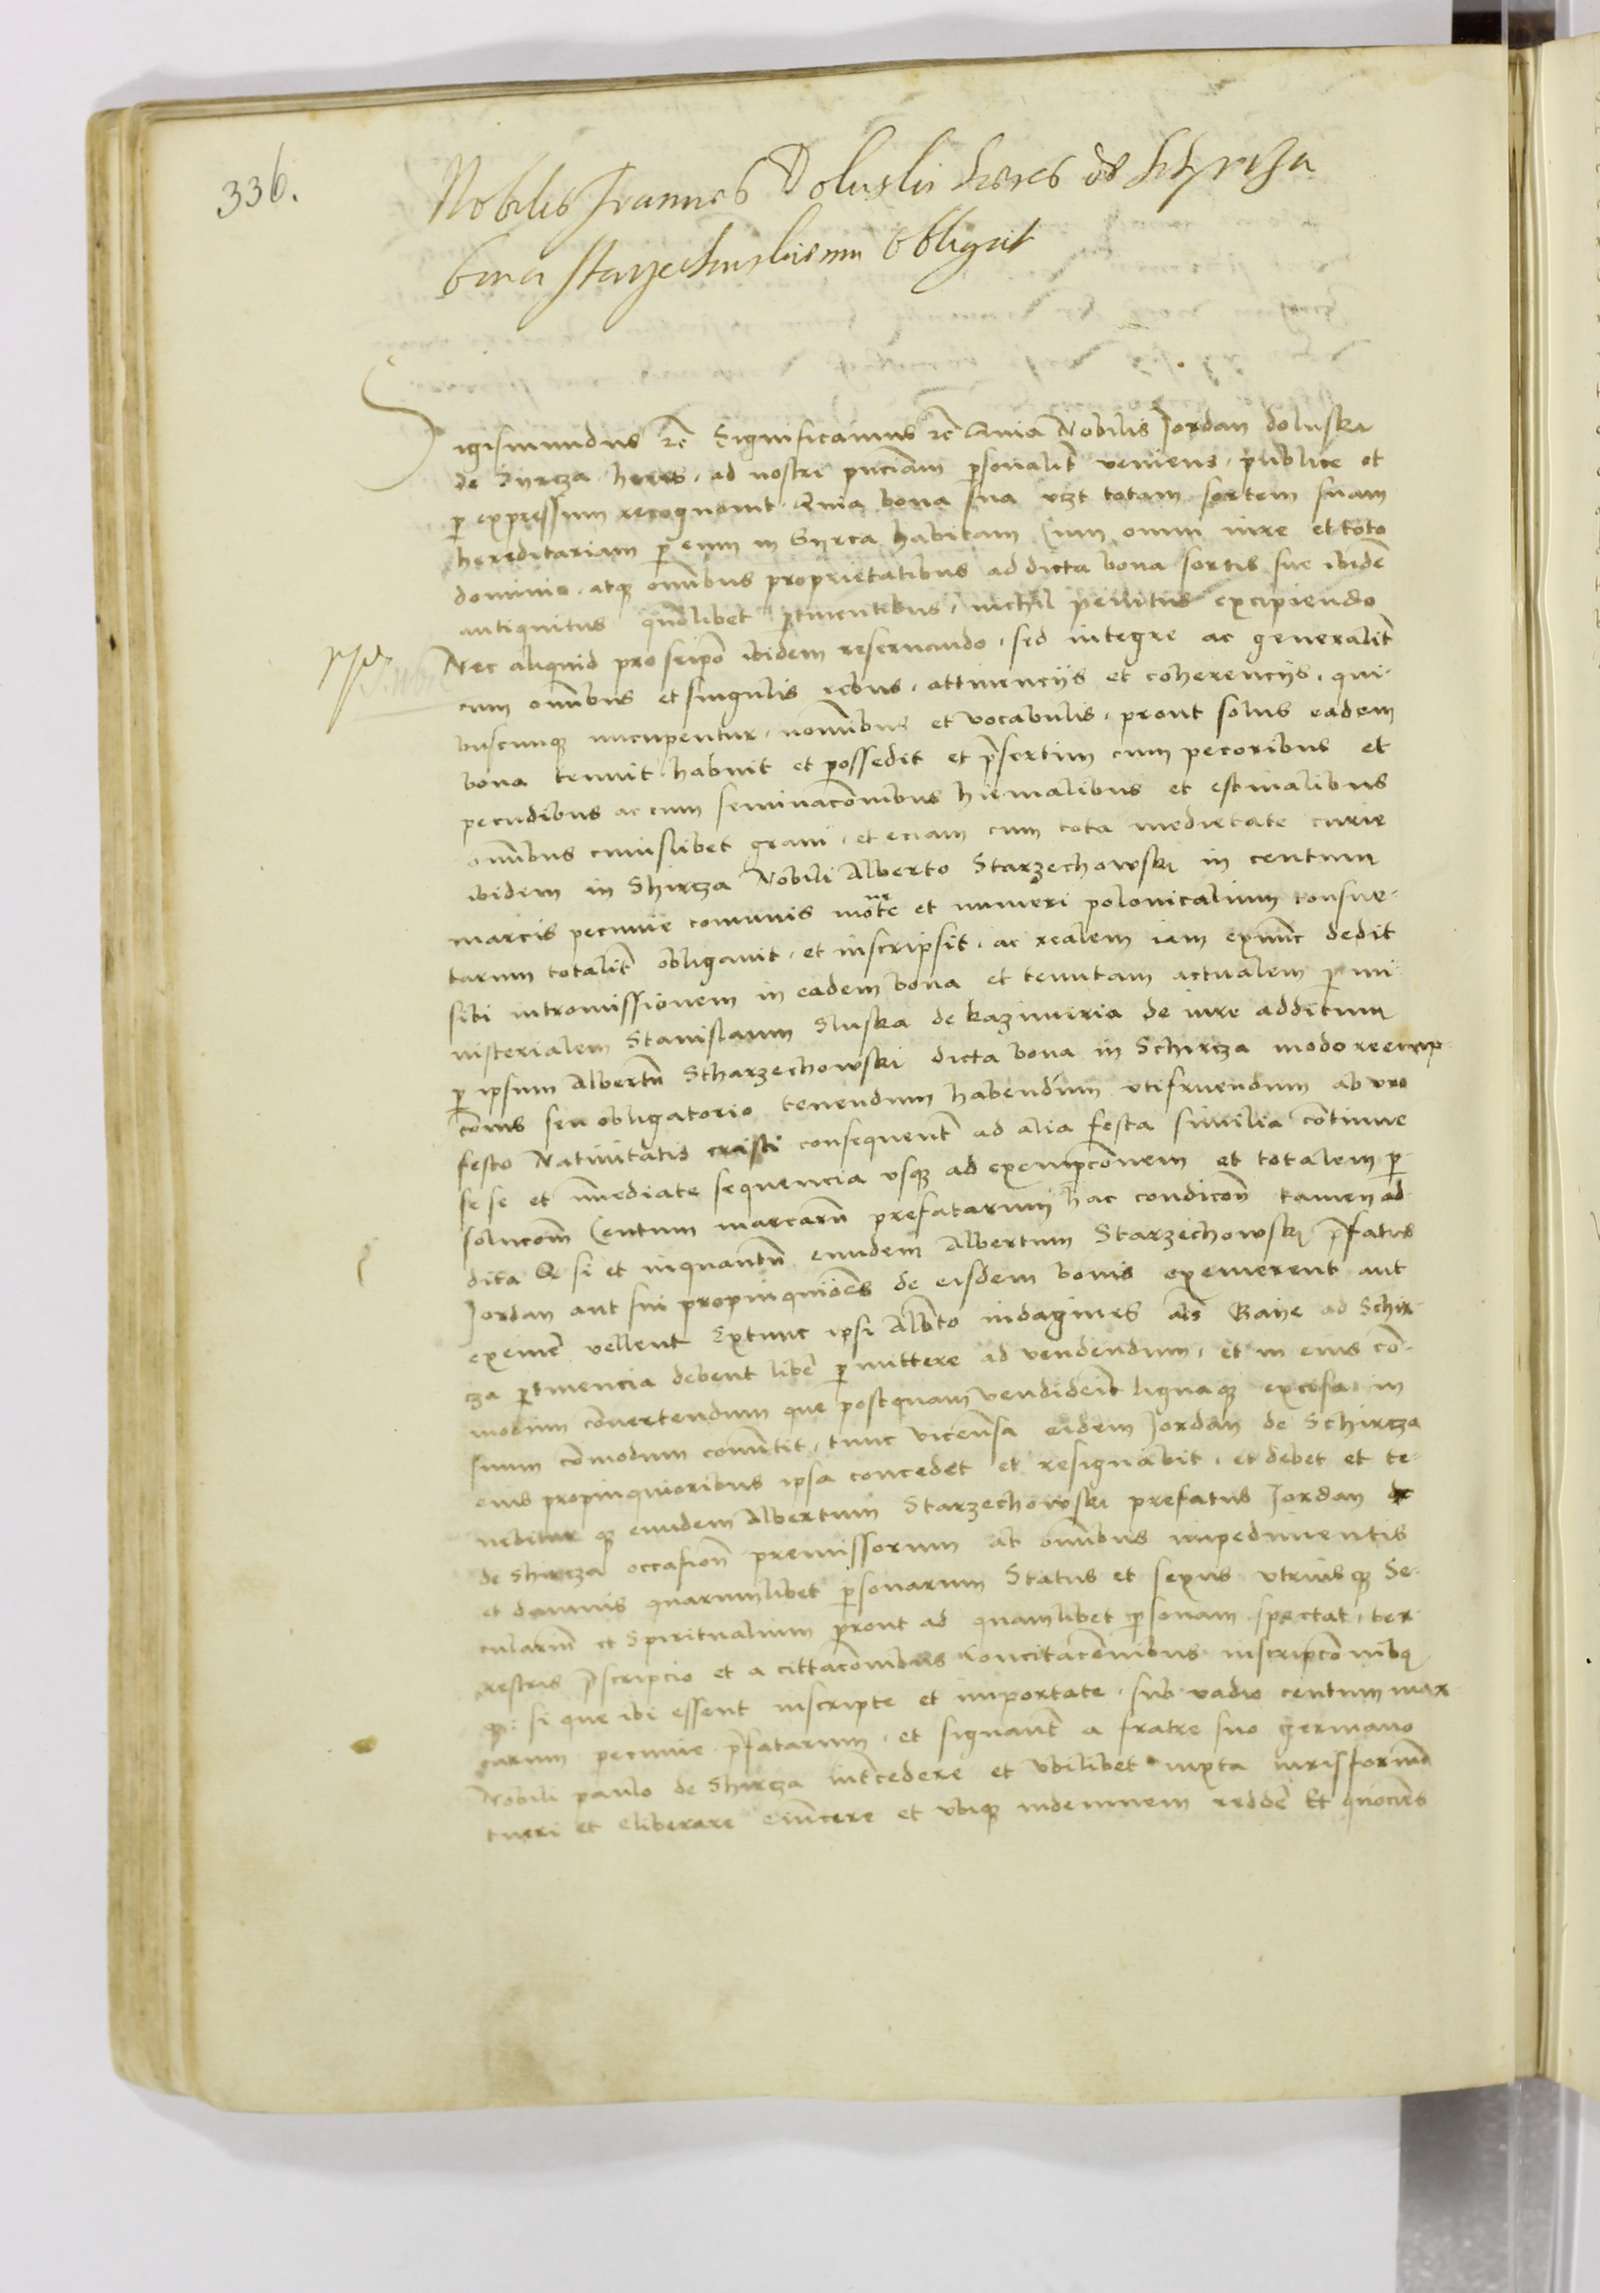 336.
Nobilis Joannes Doluski heres de Schyrcza
bona Starzechowskiemu obligat
Sigismundus rc Significamus rc Quia Nobilis Jordan doluski
de Syrcza heres, ad nostri pnciam psonalit veniens, publice et
p expressum recognovit, Quia bona sua vzt totam sortem suam
hereditariam p eum in Syrca habitam Cum omni iure et toto
dominio, atq omnibus proprietatibus ad dicta bona sortis sue ibide
antiquitus quolibet ptinentibus, nichil penitus excipiendo
Nec aliquid pro seipo ibidem reservando, sed integre ac generalit
cum omnibus et singulis rebus, attinenciis et coherenciis, qui-
buscunq nuncupentur, nominibus et vocabulis, prout solus eadem
bona tenuit habuit et possedit et psertim cum pecoribus et
pecudibus ac cum seminaconibus hiemalibus et estivalibus
omnibus cuiuslibet grani, et eciam cum tota medietate curie
ibidem in Shircza Nobili Alberto Starzechowski in centum
marcis pecunie comunis mote et numeri polonicalium consue-
tarum totalit obligavit, et inscripsit, ac realem iam exnunc dedit
sibi intromissionem in eadem bona et tenutam actualem p mi-
nisterialem Stanislaum Sluska de kazimiria de iure additum
p ipsum Albertu Stharzechowski dicta bona in Schircza modo reemp-
conis seu obligatorio tenendum habendum utifruendum ab uno
festo Nativitatis cristi consequent ad alia festa similia continue
se se et immediate sequencia usq ad exempconem et totalem p-
solucom Centum marcaru prefatarum hac condicon tamen ad
dita Q si et inquantu eundem Albertum Starzechowski pfatus
Jordan aut sui propinquiores de eisdem bonis exemerent aut
exeme vellent Extunc ipsi Albto indagines als Gaije ad Schir-
cza ptinencia debent libe pmittere ad vendendum, et in eius co-
modum convertendum que postquam vendideit lignaq excisa in
suum comodum convtit, tunc vicensa eidem Jordan de Schircza
eius propinquioribus ipsa concedet et resignabit, et debet et te-
nebitur q eundem Albertum Starzechowski prefatus Jordan
de Shircza occasion premissorum ab omnibus impedimentis
et damnis quarumlibet psonarum Status et sexus utriusq Se-
culariu et Spiritualium prout ad quamlibet psonam spectat, ter-
restris pscripcio et a cittaconibus Concitaconibus inscripconibq
q: si que ibi essent inscripte et importate, sub vadio centum mar-
carum pecunie pfatarum, et signant a fratre suo germano
Nobili paulo de Shircza intcedere et ubilibet iuxta iuris forma
tueri et eliberare evincere et ubiq indemnem redde Et quocies